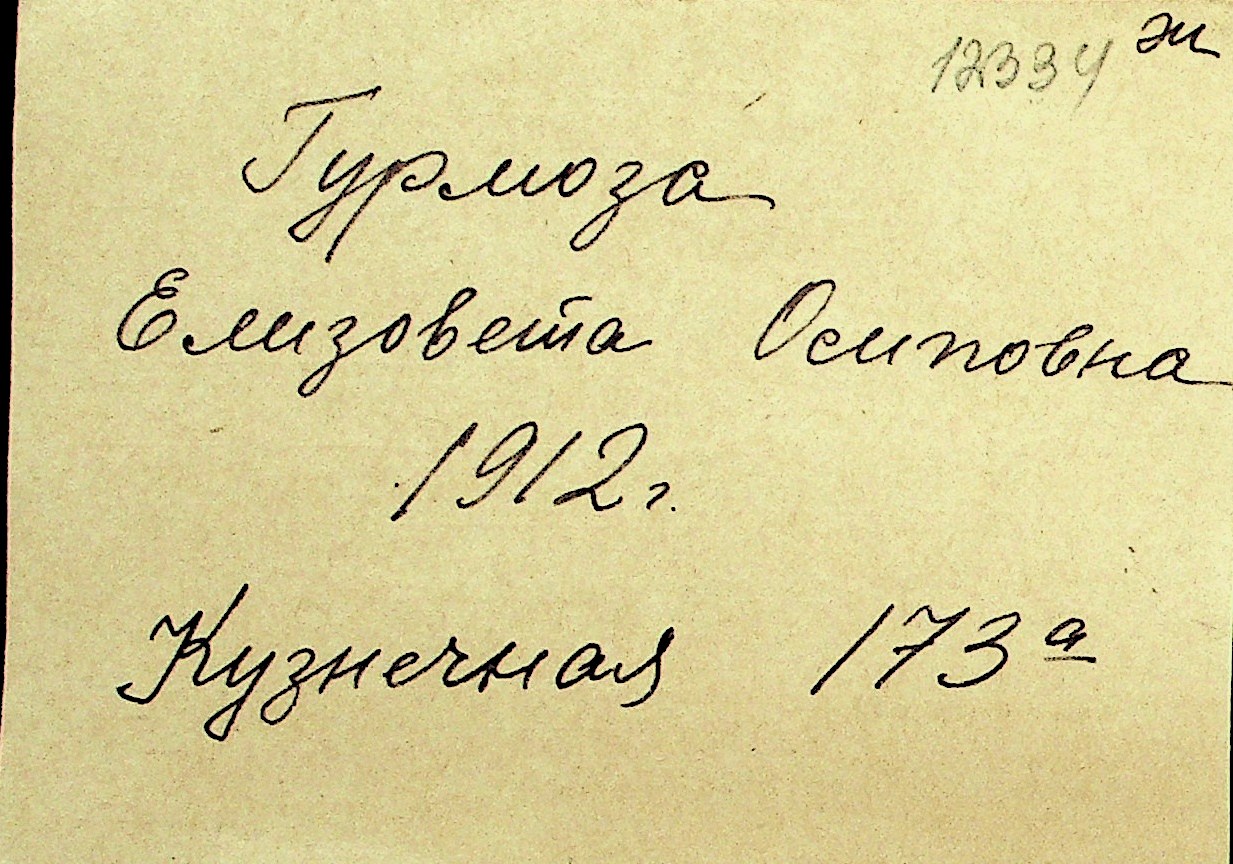 12334 ж
Гурмоза
Елизовета Осиповна
1912 г.
Кузнечная 173 а